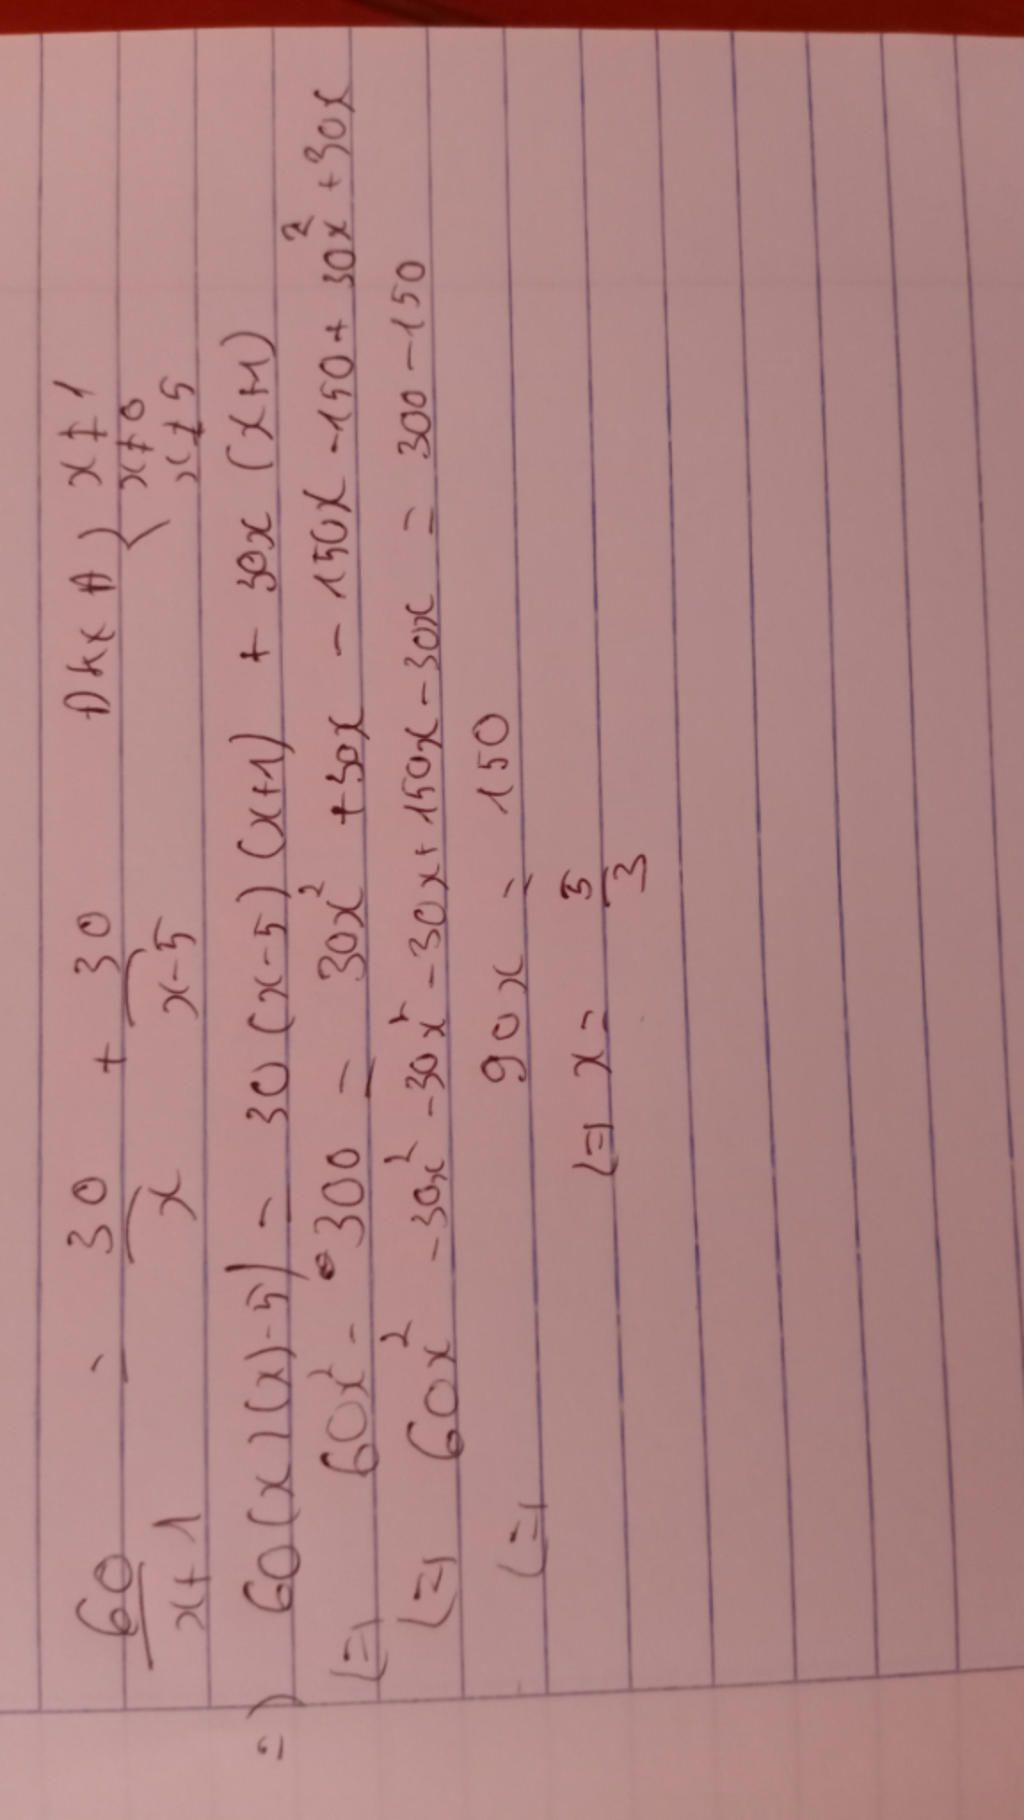 60/(x+1) = 30/x + 30/(x-5) ĐKXĐ { x ≠ 1 x ≠ 0 x ≠ 5
=) 60(x)(x)-5) = 30(x-5)(x+1) + 30x(x+1)
(=) 60x² - 300 = 30x² +30x - 150x -150 + 30x² +30x
(=) 60x² -30x² -30x² -30x+150x-30x = 300-150
(=) 90x = 150
(=) x = 5/3